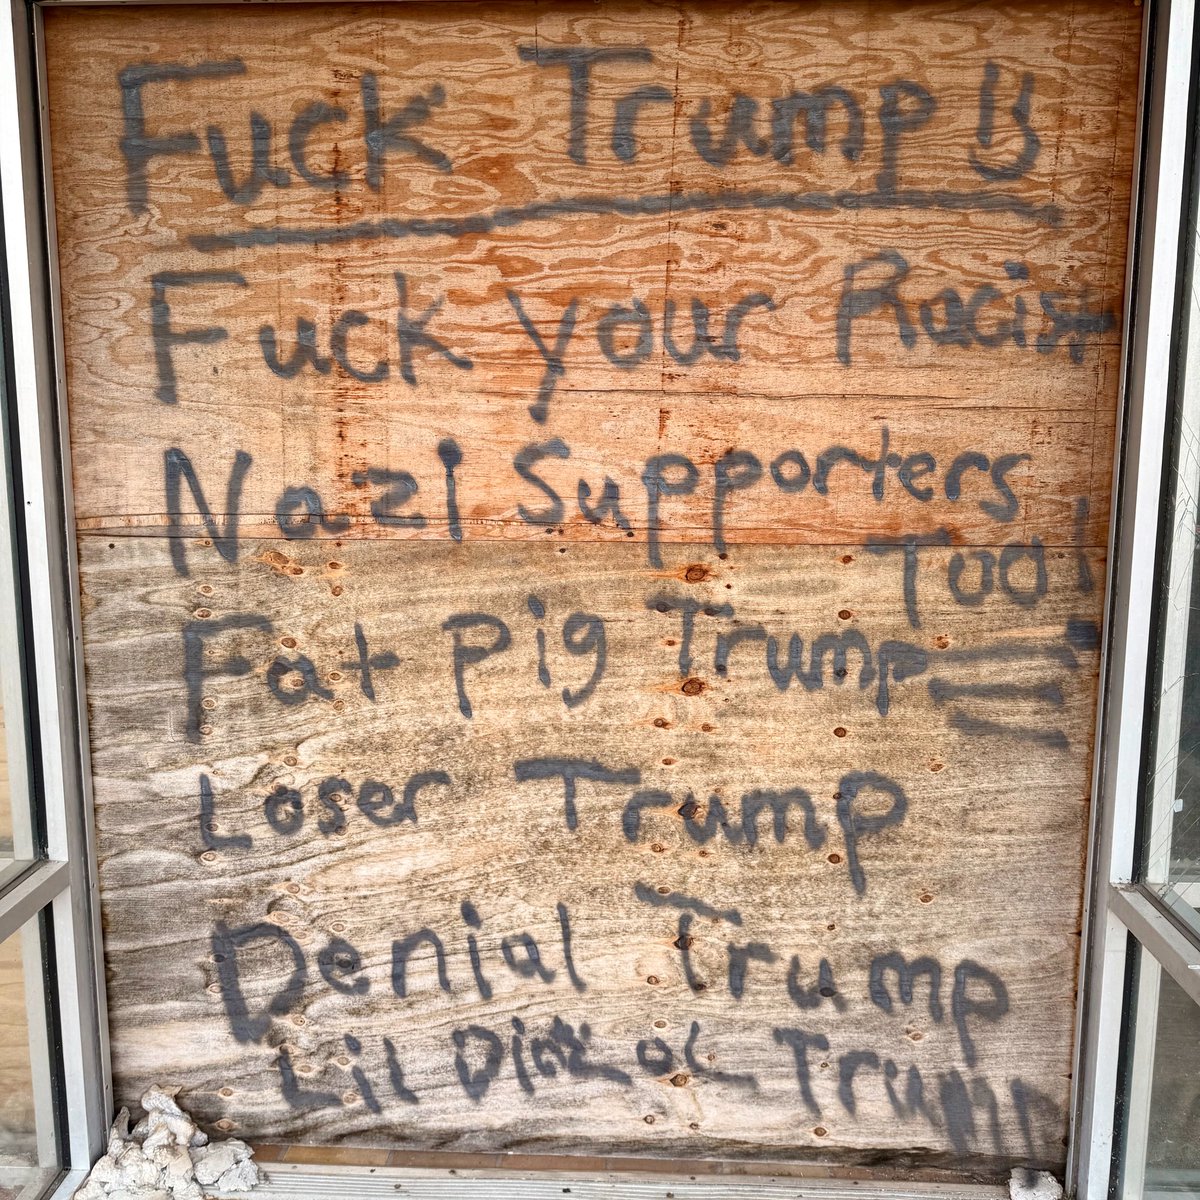 Fuck Trump!!
Fuck your Racist
Nazi Supporters
Too!
Fat pig Trump
Loser Trump
Denial Trump
Lil Dick ol Trump